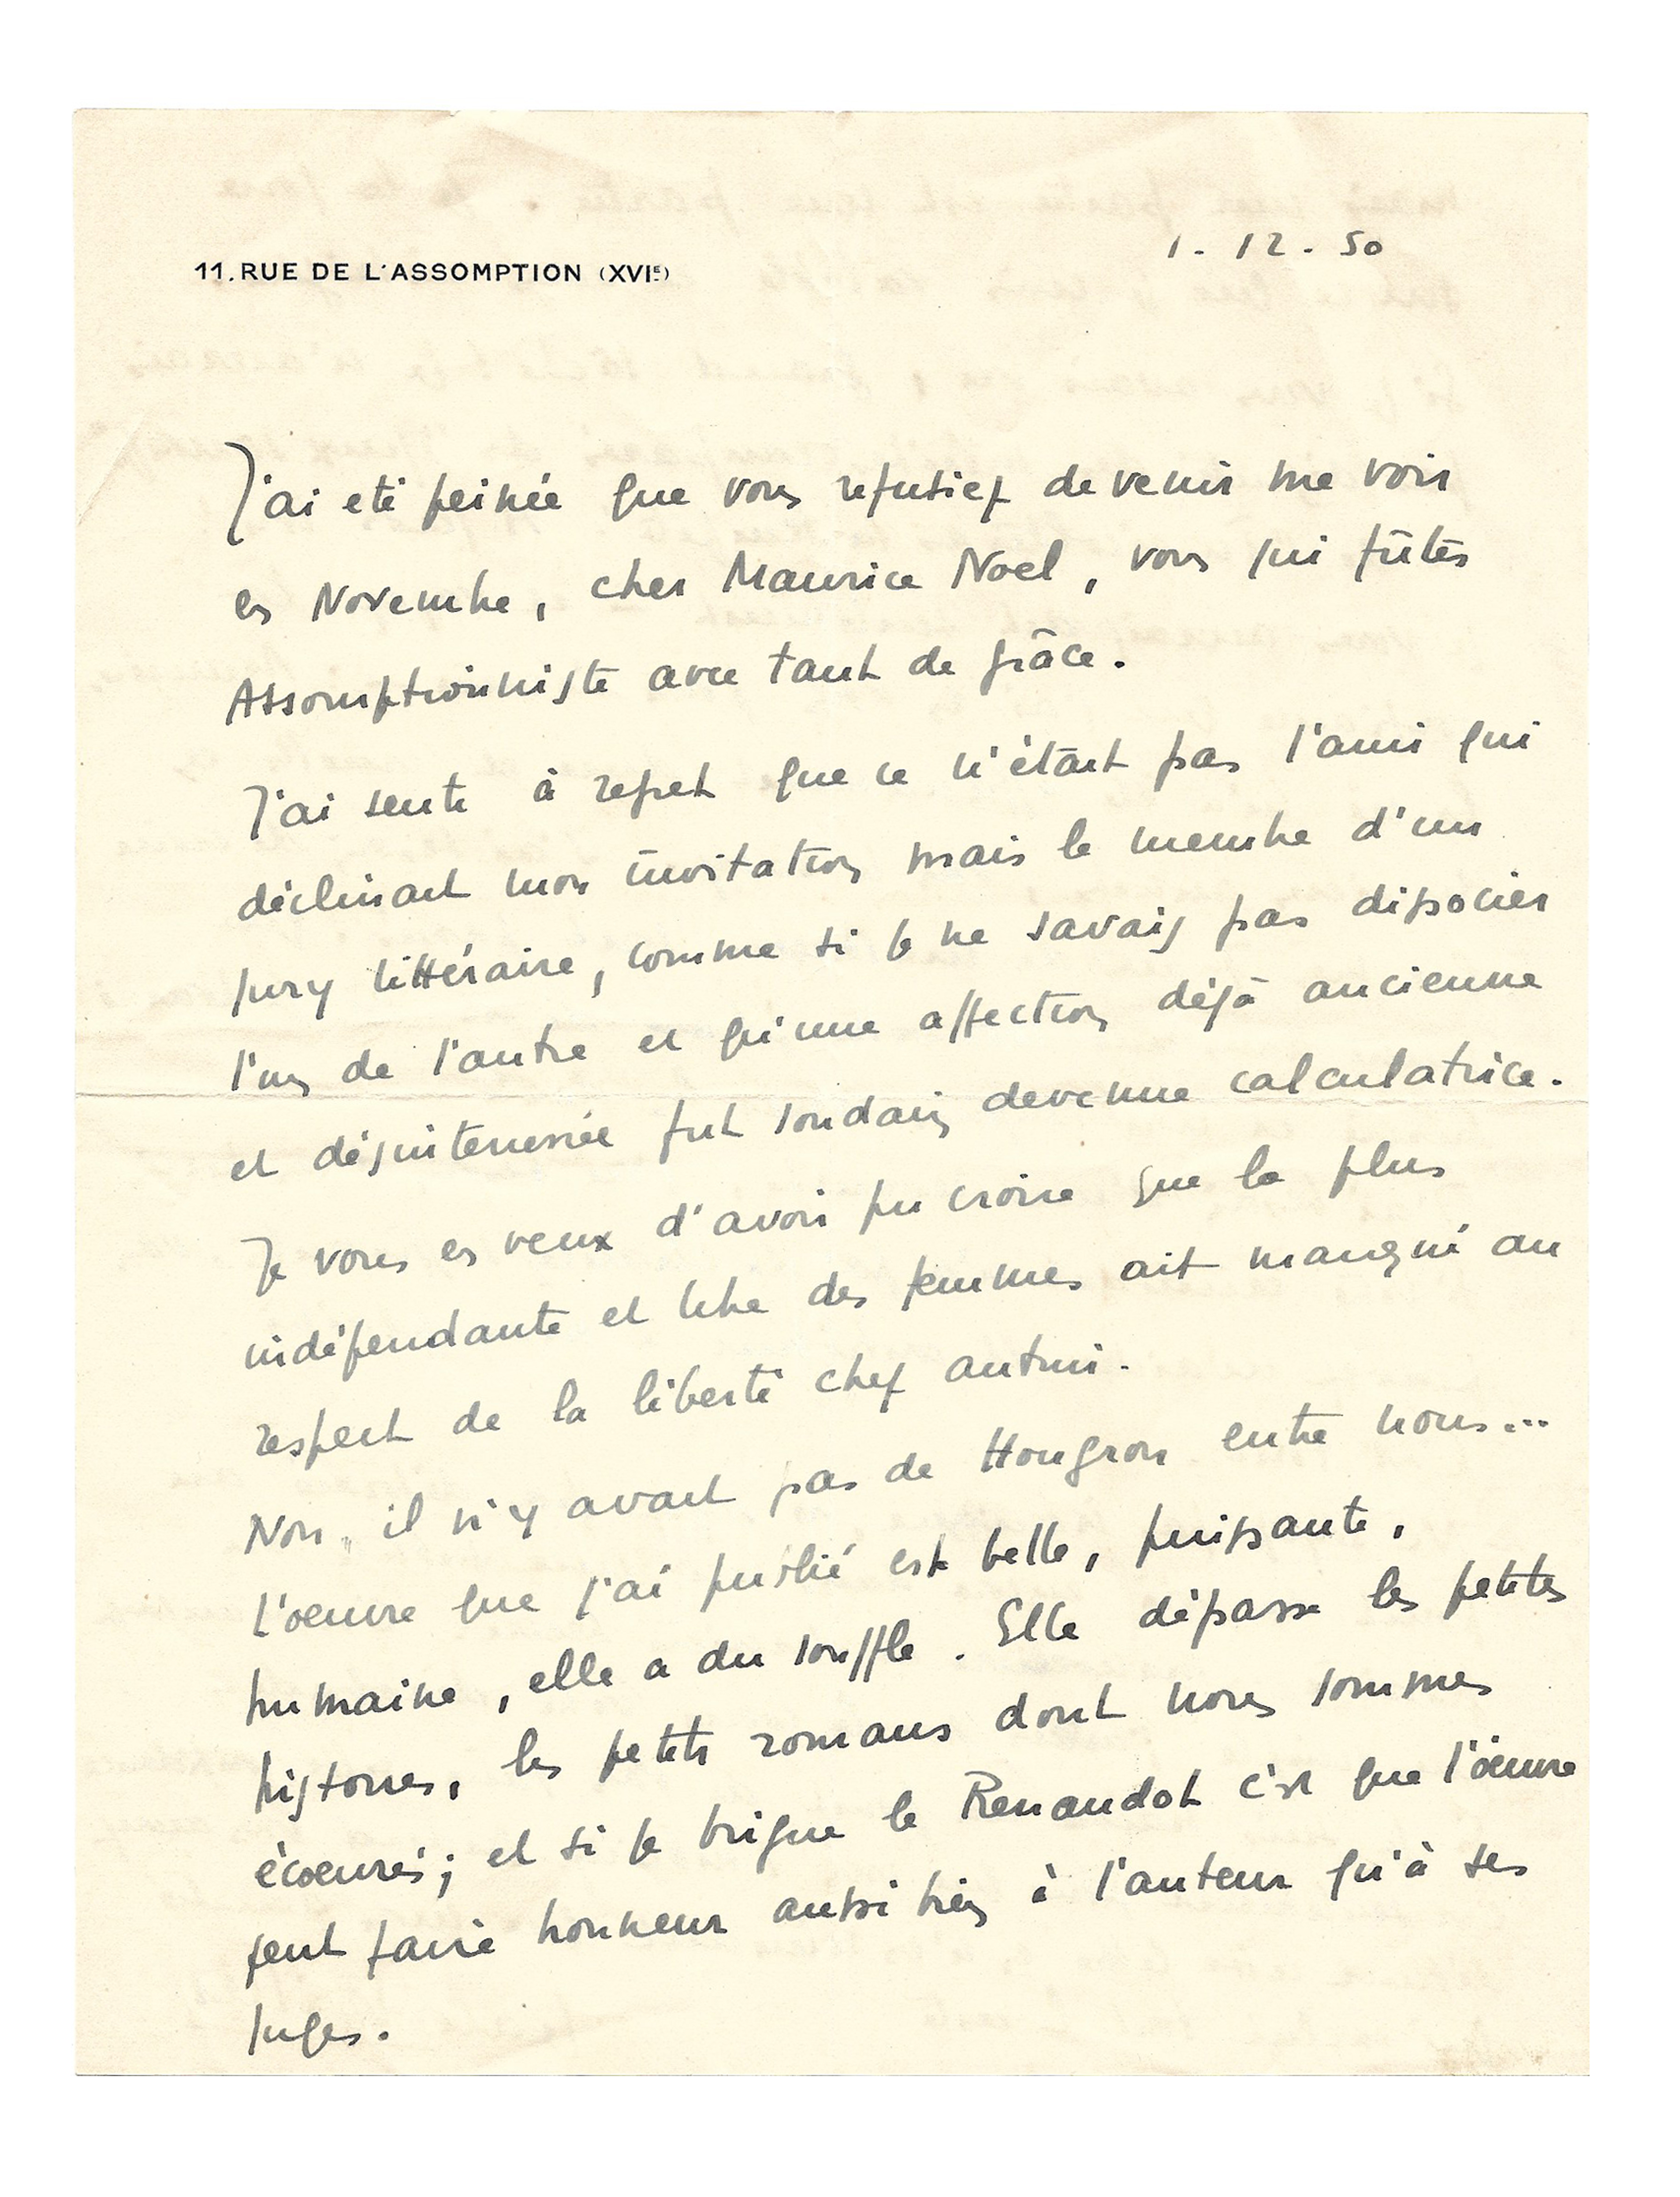 1. 12. 50
11. RUE DE L'ASSOMPTION (XVIE)
J'ai eté peinée que vous refusiez de venir me voir
en Novembre, cher Maurice Noel, vous qui fûtes
Assomptionniste avec tant de grâce.
J'ai senti à regret que ce n'était pas l'ami qui
déclinait mon invitation mais le membre d'un
jury littéraire, comme si je ne savais pas dissocier
l'un de l'autre et qu'une affection déjà ancienne
et désintéressée fut soudain devenue calculatrice.
Je vous en veux d'avoir pu croire que la plus
indépendante et libre des femmes ait manqué au
respect de la liberté chez autrui.
Non, il n'y avait pas de Hougron entre nous...
L'oeuvre que j'ai publié est belle, puissante,
humaine, elle a du souffle. Elle dépasse les petites
histoires, les petits romans dont nous sommes
écoeurés; et si je brigue le Renaudot c'est que l'oeuvre
peut faire honneur aussi bien à l'auteur qu'à ses
juges.